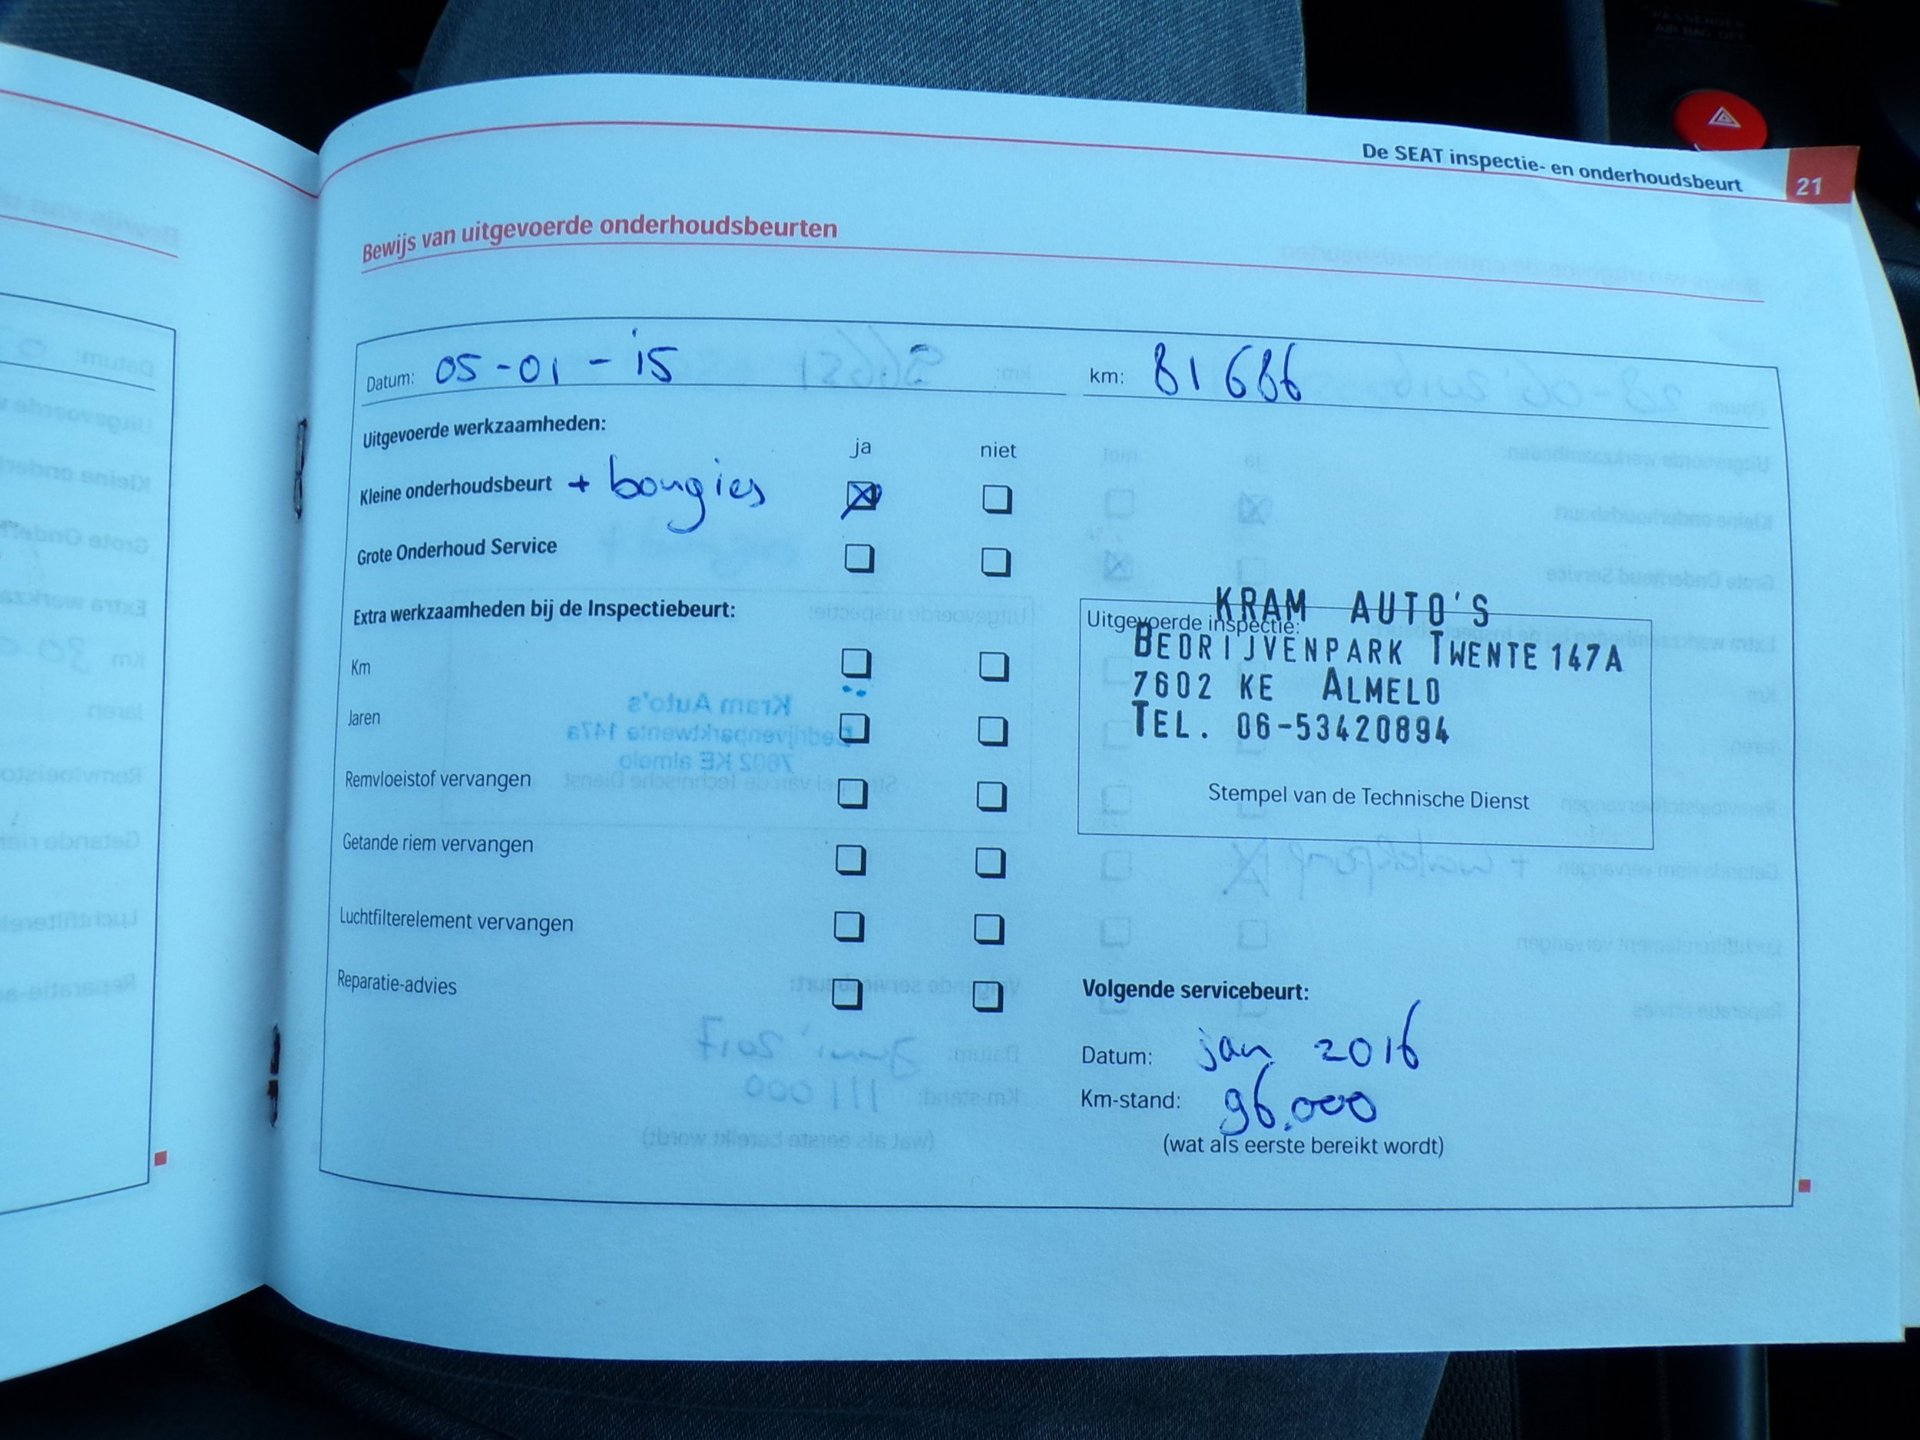 De SEAT inspectie- en onderhoudsbeurt 21
Bewijs van uitgevoerde onderhoudsbeurten
Datum: 05-01-15 km: 81686
Uitgevoerde werkzaamheden: ja niet
Kleine onderhoudsbeurt + bougies
Grote Onderhoud Service
Extra werkzaamheden bij de Inspectiebeurt:
Km
Jaren
Remvloeistof vervangen
Getande riem vervangen
Luchtfilterelement vervangen
Reparatie-advies
Uitgevoerde inspectie:
KRAM AUTO'S
BEDRIJVENPARK TWENTE 147A
7602 KE ALMELO
TEL. 06-53420894
Stempel van de Technische Dienst
Volgende servicebeurt:
Datum: jan 2016
Km-stand: 96.000
(wat als eerste bereikt wordt)